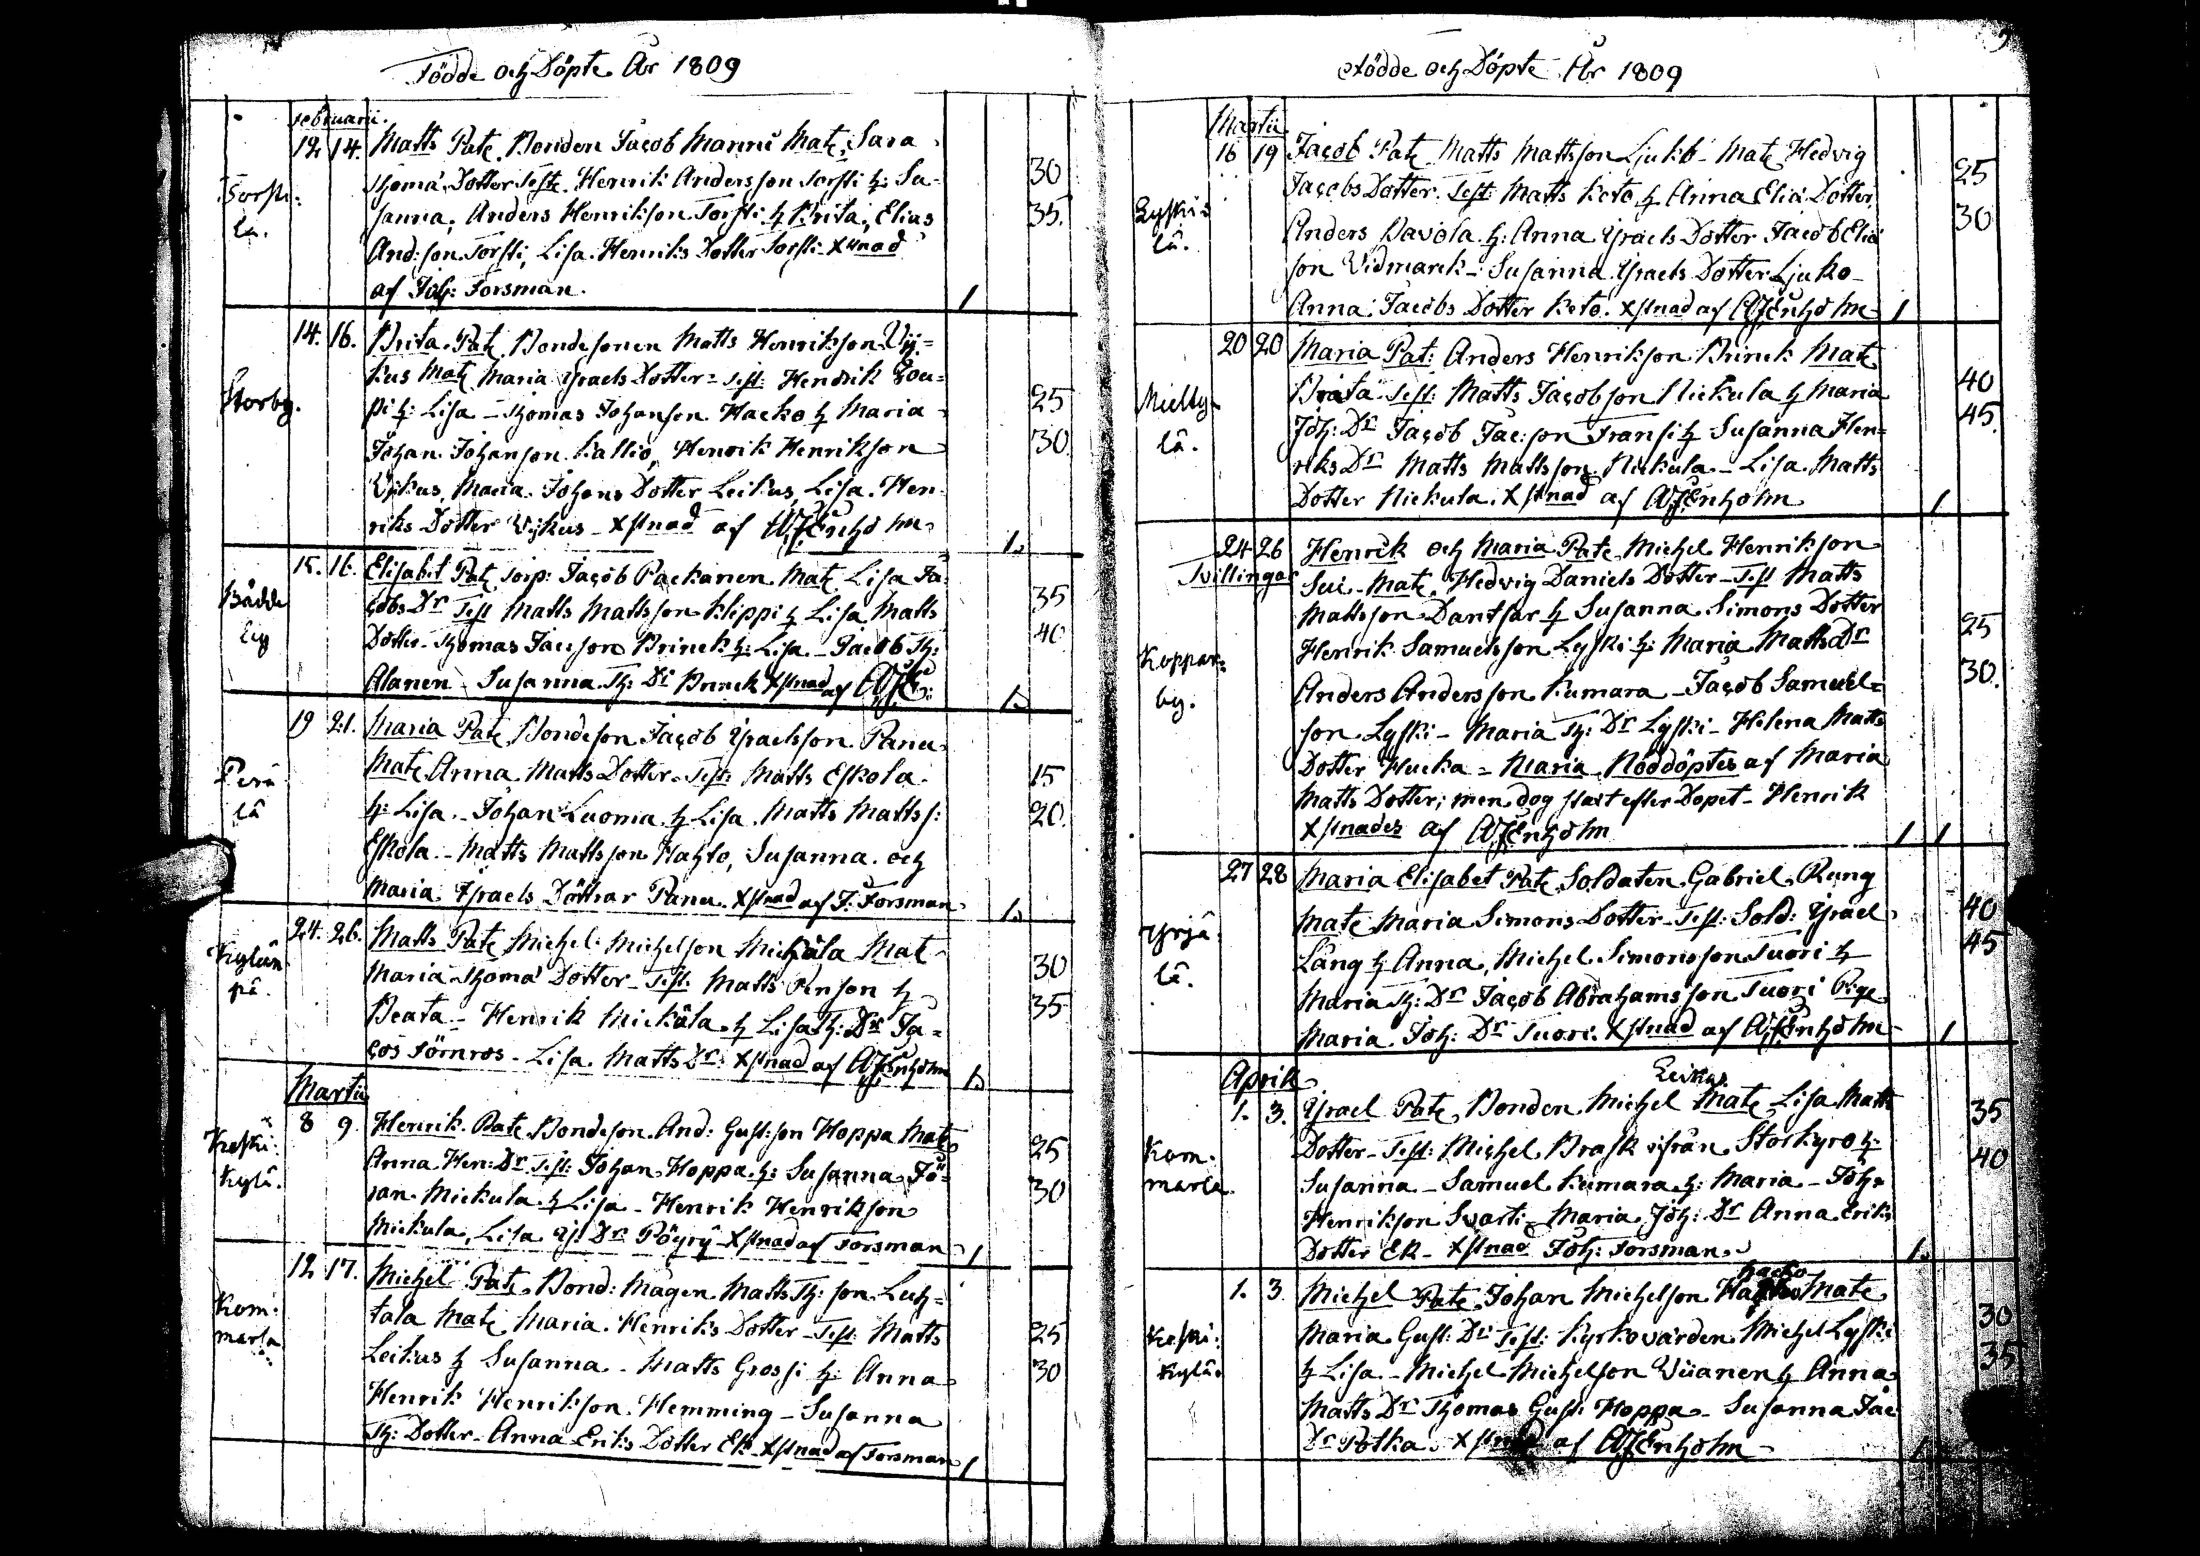 Födde och Döpte År 1809
Februarii.
12 14. Matts Pat: Bonden Jacob Manni Mat: Sara
Thomæ Dotter Test: Henrik Andersson Torsti h: Su= 30
Torsti=
sanna, Anders Henrikson Torsti h Brita, Elias 35.
lä.
And:son Torsti, Lisa Henriks Dotter Torsti Xstnad
af Joh: Forsman. 1
14. 16. Brita Pat: Bondesonen Matts Henrikson Vij=
kus Mat: Maria Ysraels Dotter= Test: Hendrik Lou=
Storby.
pi h: Lisa - Thomas Johanson Hacko h Maria 25
Johan Johanson Kallio, Henrik Henrikson 30
Vijkus, Maria Johans Dotter Leikus, Lisa Hen
riks Dotter Vijkus - Xstnad af Enholm 1.
15. 16. Elisabet Pat: Torp: Jacob Packanen Mat: Lisa Ja
Bådde
cobs Dr Test Matts Mattsson Klippi h Lisa Matts 35
by
Dotter - Thomas Jacsson Brinck h: Lisa - Jacob Th: 40
Alanen - Susanna Th: Dr Brinck Xstnad af 1.
19 21. Maria Pat: Bondeson Jacob Ysraelsson Panu
Mat: Anna Matts Dotter - Test: Matts Eskola
Perä
h: Lisa - Johan Luoma h Lisa Matts Matts s: 15
lä
Eskola - Matts Mattsson Hahto, Susanna och 20.
Maria Ysraels Döttrar Panu. Xstnad af J. Forsman 1.
24. 26. Matts Pat: Michel Michelson Mickäla Mat
Kylän
Maria Thomæ Dotter - Test: Matts Renson h 30
pä.
Beata - Henrik Mickäla h Lisa Th: Dr Ja= 35
cos Törnros - Lisa Matts Dr: Xstnad af Enholm 1.
Martii
8 9. Henrik Pat: Bondeson And: Gust:son Hoppa Mat:
Keski=
Anna Hen: Dr Test: Johan Hoppa h: Susanna Jö= 25
Kylä.
ran Mickula h Lisa - Henrik Henrikson 30
Mickula, Lisa Dr Pöyry Xstnad af Forsman 1
12 17. Michel Pat: Bond: Mågen Matts Th: son Luh=
Kom=
tala Mat: Maria Henriks Dotter - Test: Matts 25
marla
Leikus h Susanna - Matts Grossi h: Anna 30
Henrik Henrikson Hemming - Susanna
Th: Dotter - Anna Eriks Dotter Ek Xstnad af Forsman 1
Födde och Döpte År 1809
Martii
16 19 Jacob Pat: Matts Mattsson Ljuko - Mat: Hedvig
Jacobs Dotter. Test: Matts Keto h Anna Eliæ Dotter, 25
Lyski=
Anders Davola h: Anna Ysraels Dotter Jacob Eliæ 30
lä.
son Vidmarck - Susanna Ysraels Dotter Ljuko -
Anna Jacobs Dotter Keto. Xstnad af Enholm 1
20 20 Maria Pat: Anders Henrikson Brinck Mat:
Mielty=
Brita Test: Matts Jacobson Nickula h Maria 40
lä.
Joh: Dr Jacob Jac:son Fransi h Susanna Hen= 45.
riks Dr Matts Mattsson Nickula - Lisa Matts
Dotter Nickula. Xstnad af Enholm 1
24 26 Henrik och Maria Pat: Michel Henrikson
Tvillingar
Sui - Mat: Hedvig Daniels Dotter - Test Matts
Mattsson Dantsar h Susanna Simons Dotter
Henrik Samuelsson Lyski h: Maria Matts Dr 25
Koppar=
by.
Anders Andersson Kumara - Jacob Samuel= 30.
son Lyski - Maria Th: Dr Lyski - Helena Matts
Dotter Hucka = Maria Nöddöptes af Maria
Matts Dotter; men dog strart efter Dopet - Henrik
Xstnades af Enholm 1 1
27 28 Maria Elisabet Pat: Soldaten Gabriel Rung
Yrjä=
Mat: Maria Simons Dotter - Test: Sold: Ysrael 40
lä.
Lång h Anna, Michel Simonsson Tuori h 45
Maria Th: Dr Jacob Abrahamsson Tuori Pige
Maria Joh: Dr Tuori. Xstnad af Enholm 1
Aprili
Leikus
1. 3. Ysrael Pat: Bonden Michel Mat: Lisa Matts 35
Kom=
Dotter - Test: Michel Brask ifrån Storkyro h: 40
marla.
Susanna - Samuel Kumara h: Maria - Joh:
Henrikson Svarti - Maria Joh: Dr Anna Eriks
Dotter Ek - Xstnad Joh: Forsman. 1.
Hacko
1. 3 Michel Pat: Johan Michelson Mat:
Maria Gust: Dr Test: Kyrkovärden Michel Lyski 30
Keski=
Kylä.
h Lisa - Michel Michelson Viianen h Anna 35
Matts Dr Thomas Gust: Hoppa - Susanna Jac
Dr Potka. Xstnad af Enholm 1.